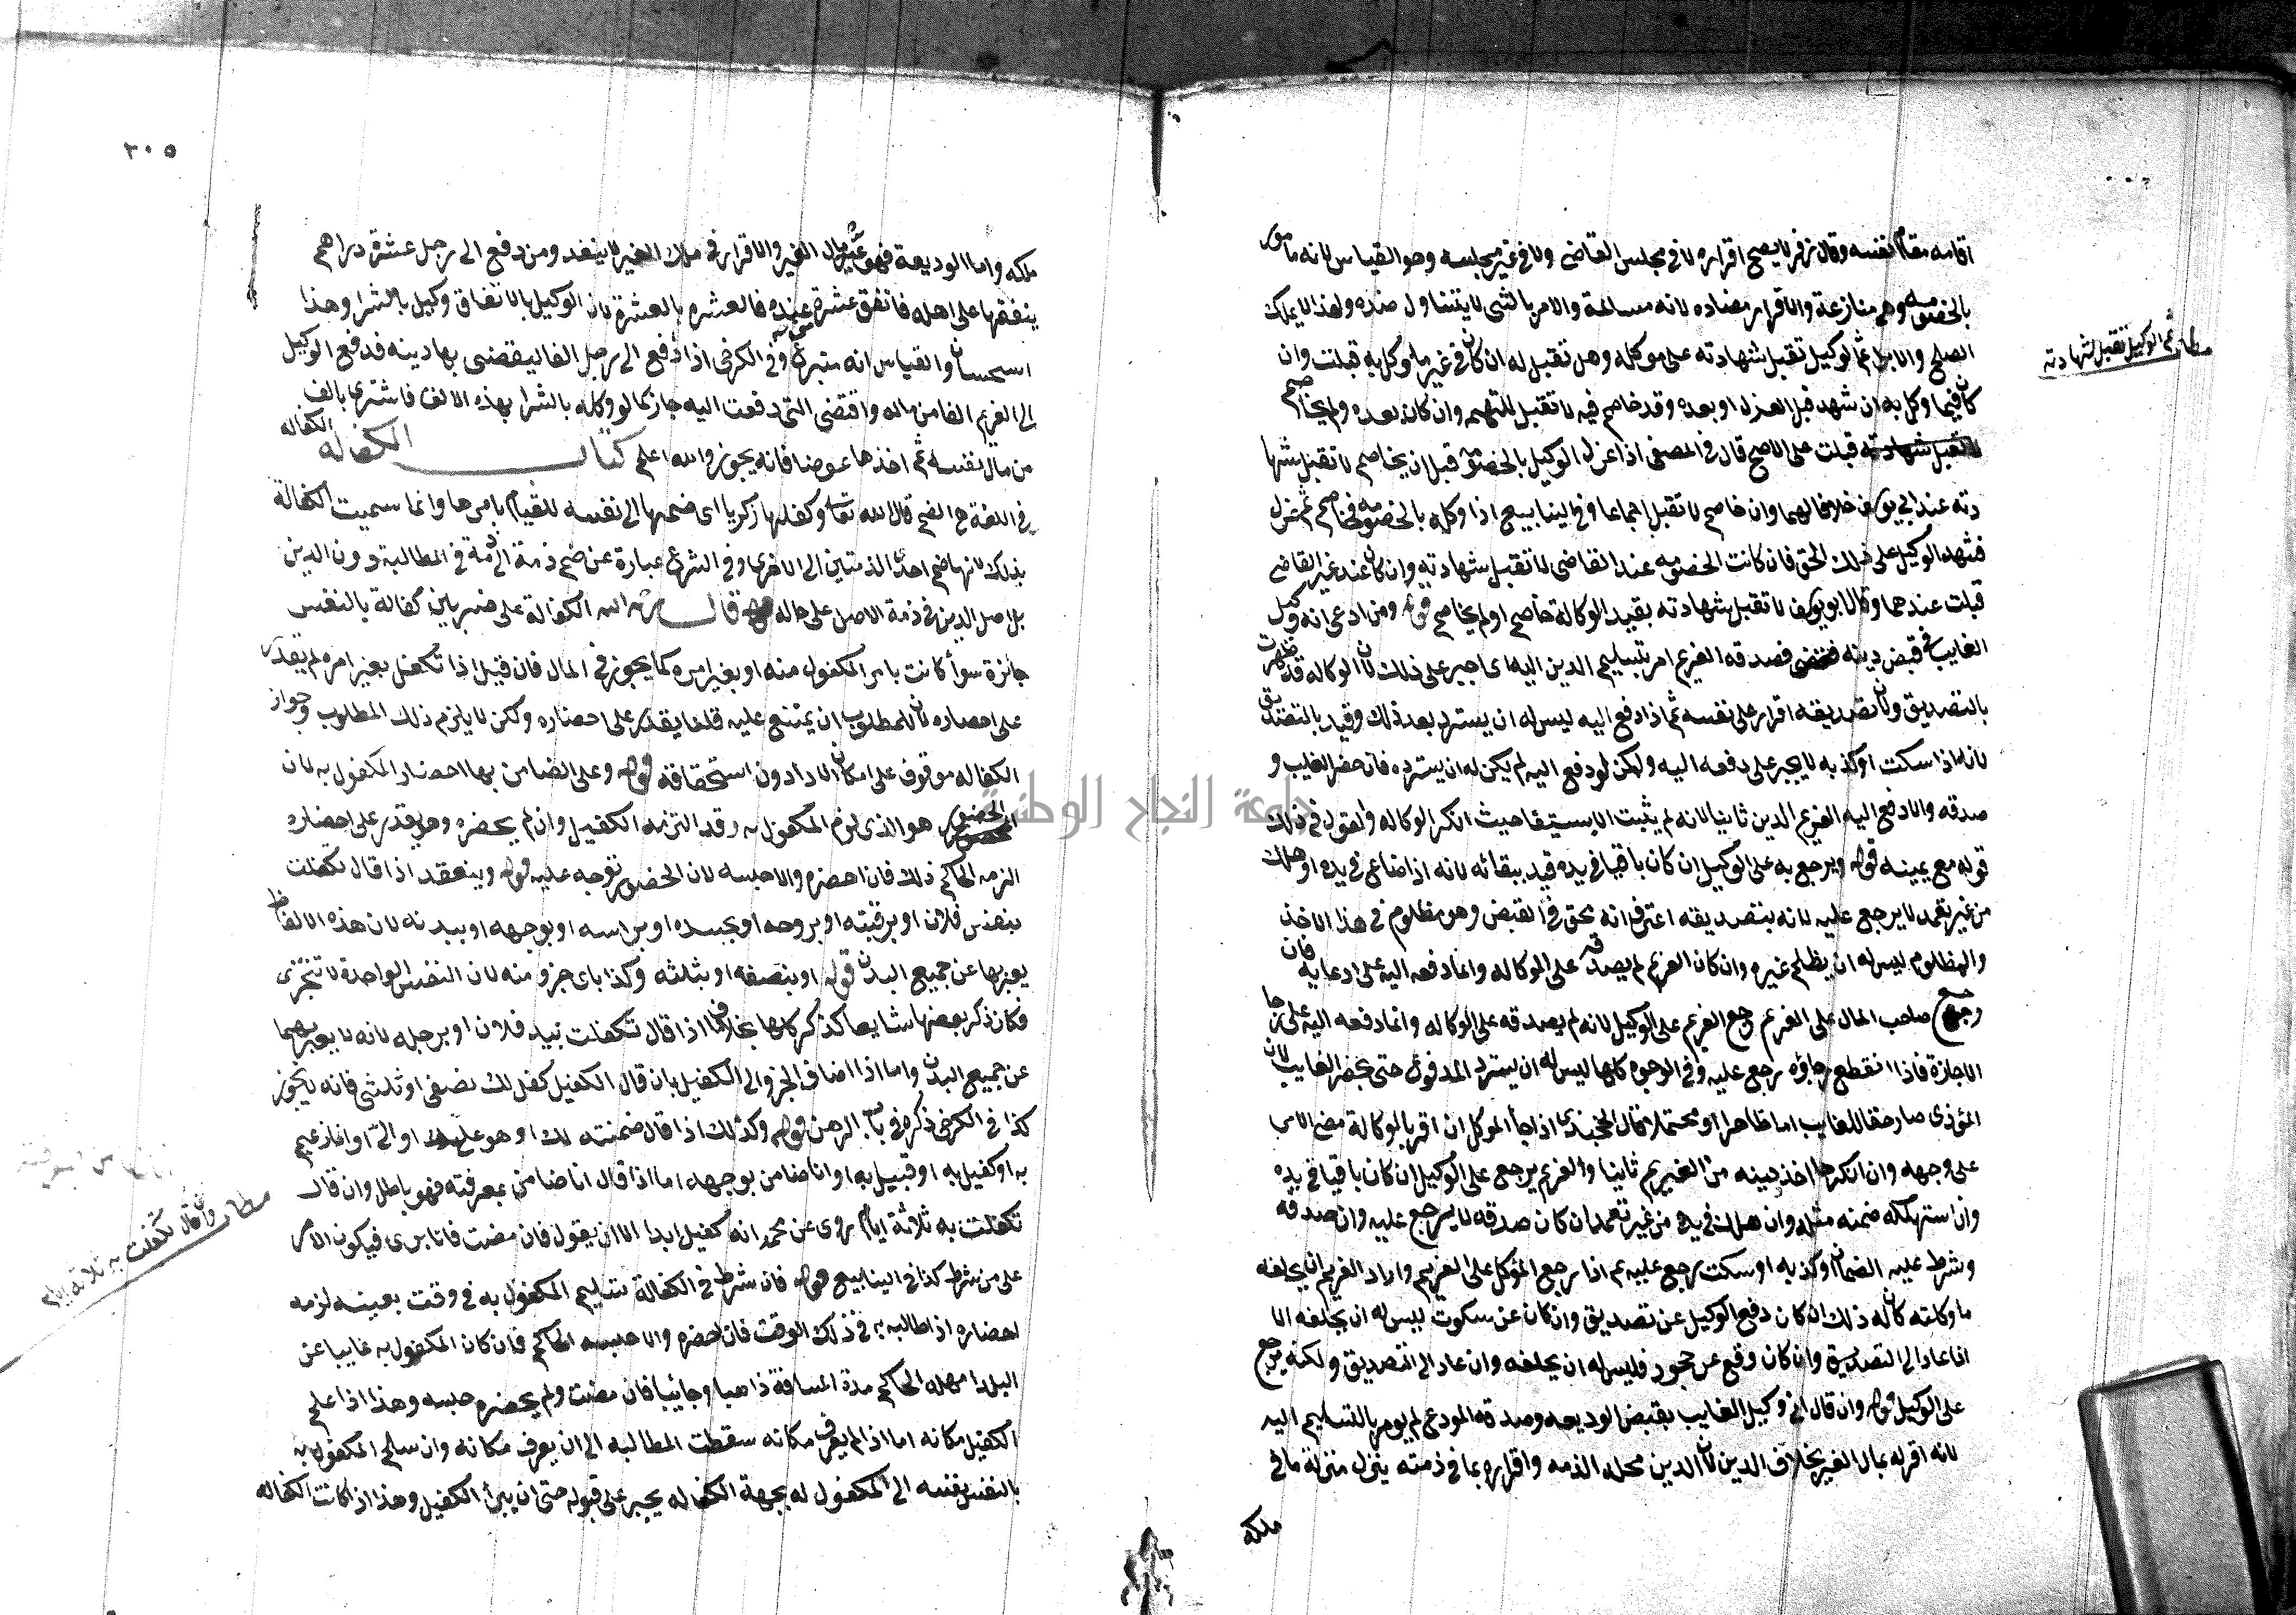 اقامه مقام نفسه وقال زفر لا يصح اقراره لا في مجلس القاضي ولا في غير مجلسه وهو القياس لانه مامور
بالخصومه وهي منازعة والاقرار مضاده لانه مسالمة والامر بالشي لا يتناول ضده ولهذا لا يملك
الصلح والابرا ثم الوكيل تقبل شهادته على موكله وهل تقبل له ان كان في غير ما وكل به قبلت وان
كان فيما وكل به ان شهد قبل العزل او بعده وقد خاصم فيه لا تقبل للتهمه وان كان بعده ولم يخاصم
قبلت على الاصح قال في المصفى اذا عزل الوكيل بالخصومة قبل ان يخاصم لا تقبل شها
دته عند ابي يوسف خلافا لهما وان خاصم لا تقبل اجماعا وفي الينابيع اذا وكله بالخصومه فخاصم ثم عزل
فشهد الوكيل على ذلك الحق فان كانت الخصومه عند القاضي لا تقبل شهادته وان كان عند غير القاضي
قبلت عندهما وقال ابو يوسف لا تقبل شهادته بقيد الوكالة خاصم او لم يخاصم قوله ومن ادعى انه وكيل
الغايب في قبض دينه فصدقه الغريم امر بتسليم الدين اليه اي اجبر على ذلك لان الوكاله قد ظهرت
بالتصديق ولان تصديقه اقرار على نفسه ثم اذا دفع اليه ليس له ان يسترد بعد ذلك وقيد بالتصديق
لانه اذا سكت او كذبه لا يجبر على دفعه اليه ولكن لو دفع اليه لم يكن له ان يسترده فان حضر الغايب و
صدقه والا دفع اليه الغريم الدين ثانيا لانه لم يثبت الاستيفا حيث انكر الوكاله والقول في ذلك
قوله مع يمينه قوله ويرجع به على الوكيل ان كان باقيا في يده قيد ببقائه لانه اذا ضاع في يده او هلك
من غير تعمد لا يرجع عليه لانه بتصديقه اعترف انه محق في القبض وهو مظلوم في هذا الاخذ
والمظلوم ليس له ان يظلم غيره وان كان الغريم لم يصدقه على الوكاله وانما دفعه اليه على ادعايه فان
رجع صاحب المال على الغريم رجع الغريم على الوكيل لانه لم يصدقه على الوكاله وانما دفعه اليه على رجا
الاجازة فاذا انقطع رجاؤه رجع عليه وفي الوجوه كلها ليس له ان يسترد المدفوع حتى يحضر الغايب لان
المؤدى صار حقا للغايب اما ظاهرا او محتملا قال الخجندي اذا جا الموكل ان اقر بالوكالة مضى الامر
على وجهه وان انكرها اخذ دينه من الغريم ثانيا والغريم يرجع على الوكيل ان كان باقيا في يده
وان استهلكه ضمنه مثله وان هلك في يده من غير تعمد ان كان صدقه لا يرجع عليه وان صدقه
وشرط عليه الضمان او كذبه او سكت يرجع عليه ثم اذا رجع الموكل على الغريم واراد الغريم ان يحلفه
ما وكلته كان له ذلك ان كان دفع الوكيل عن تصديق وان كان عن سكوت ليس له ان يحلفه الا
اذا عاد الى التصديق وان كان دفع عن جحود فليس له ان يحلفه وان عاد الى التصديق ولكنه يرجع
على الوكيل قوله وان قال اني وكيل الغايب بقبض الوديعه وصدقه المودع لم يومر بالتسليم اليه
لانه اقر له بمال الغير بخلاف الدين لان الدين محله الذمه واقراره بما في ذمته ينزل منزلة ما في
ملكه
مطلب ثم الوكيل تقبل شهادته
٣٠٥
ملكه واما الوديعة فهو عين مال الغير والاقرار في ملك الغير لا ينفد ومن دفع الى رجل عشرة دراهم
ينفقها على اهله فانفق عشرة من عنده فالعشره بالعشرة لان الوكيل بالانفاق وكيل بالشرا وهذا
استحسان والقياس انه متبرع وفي الكرخي اذا دفع الى رجل الفا ليقضي بها دينه فدفع الوكيل
الى الغريم الفا من ماله واقتضى التي دفعت اليه جاز كما لو وكله بالشرا بهذه الالف فاشترى بالف
من مال نفسه ثم اخذها عوضا فانه يجوز والله اعلم كتاب الكفاله الكفاله
في اللغة هي الضم قال الله تعالى وكفلها زكريا اي ضمها الى نفسه للقيام بامرها وانما سميت الكفالة
بذلك لانها ضم احدى الذمتين الى الاخرى وفي الشرع عبارة عن ضم ذمة الى ذمة في المطالبة دون الدين
بل اصل الدين في ذمة الاصل على حاله قال رحمه الله الكفالة على ضربين كفالة بالنفس
جائزة سوأ كانت بامر المكفول منه او بغير امره كما يجوز في المال فان قيل اذا تكفل بغير امره لم يقدر
على احضاره لان للمطلوب ان يمتنع عليه قلنا يقدر على احضاره ولكن لا يلزم ذلك المطلوب وجواز
الكفاله موقوف على امكان الادا دون استحقاقه قوله وعلى الضامن بها احضار المكفول به لان
الحضور هو الذي لزم المكفول به وقد التزمه الكفيل وان لم يحضره وهو يقدر على احضاره
الزمه الحاكم ذلك فان احضره والا حبسه لان الحضور توجه عليه قوله وينعقد اذا قال تكفلت
بنفس فلان او برقبته او بروحه او بجسده او براسه او بوجهه او ببدنه لان هذه الالفاظ
يعبر بها عن جميع البدن قوله او بنصفه او بثلثه وكذا باي جزو منه لان النفس الواحدة لا تتجزى
فكان ذكر بعضها شايعا كذكر كلها بخلاف ما اذا قال تكفلت بيد فلان او برجله لانه لا يعبر بهما
عن جميع البدن واما اذا اضاف الجزو الى الكفيل بان قال الكفيل كفل لك نصفي او ثلثي فانه لا يجوز
كذا في الكرخي ذكره في باب الرهن قوله وكذلك اذا قال ضمنته لك او هو علي او الي او انا زعيم
به او كفيل به او قبيل به او انا ضامن بوجهه اما اذا قال انا ضامن بمعرفته فهو باطل وان قال
تكفلت به ثلاثة ايام روي عن محمد انه كفيل ابدا الا ان يقول فان مضت فانا بري فيكون الامر
على من شرط كذا في الينابيع قوله فان شرط في الكفالة تسليم المكفول به في وقت بعينه لزمه
احضاره اذا طالبه به في ذلك الوقت فان احضره والا حبسه الحاكم فان كان المكفول به غايبا عن
البلد امهله الحاكم مدة المسافة ذاهبا وجائيا فان مضت ولم يحضره حبسه وهذا اذا علم
الكفيل مكانه اما اذا لم يعرف مكانه سقطت المطالبه الى ان يعرف مكانه وان سلم المكفول به
بالنفس نفسه الى المكفول له بجهة الكفاله يجبر على قبوله حتى ان يبرأ الكفيل وهذا اذا كانت الكفاله
مطلب وان قال تكفلت به ثلاثة ايام
جامعة النجاح الوطنية